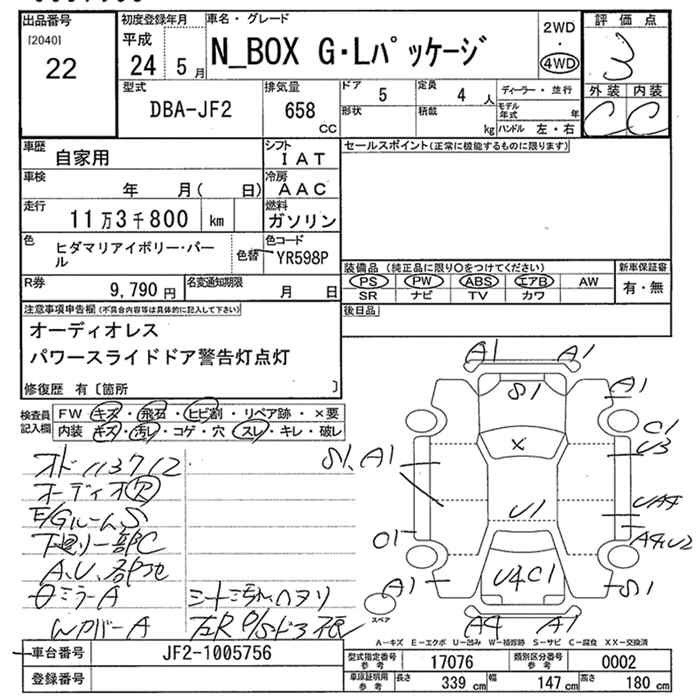 出品番号 初度登録年月 車名・グレード 2WD 評価点
[2040] 平成 N_BOX G・Lパッケージ ・ 3
22 24 5月 4WD
型式 排気量 ドア 5 定員 4人 ディーラー・並行 外装 内装
DBA-JF2 658 cc 形状 積載 kg モデル年式 年 C C
ハンドル 左・右
車歴 自家用 シフト IAT セールスポイント(正常に機能するものに限ります)
車検 年 月( 日) 冷房 AAC
走行 11万3千800 km 燃料 ガソリン
色 ヒダマリアイボリー・パール 色替 色コード YR598P
装備品(純正品に限り○をつけてください) 新車保証書
R券 9,790円 名変通知期限 月 日 PS PW ABS エアB AW 有・無
SR ナビ TV カワ
注意事項申告欄(不具合内容等は具体的に記入して下さい) 後日品
オーディオレス
パワースライドドア警告灯点灯
修復歴 有〔箇所 〕
検査員記入欄 FW キズ・飛石・ヒビ割・リペア跡・×要
内装 キズ・汚レ・コゲ・穴・スレ・キレ・破レ
A1 A1
S1 A1
C1
U3
オド113712 S1、A1 X
オーディオR
E/GルームS U1 UA4
下廻り一部C C1 A4.U2
A.U.各部地
ミラーA シート汚れ、ヘタリ A1 U4C1 S1
WPバーA 左R P/Sドア A4 A1
スペア
A-キズ E-エクボ U-凹み W-補修跡 S-サビ C-腐食 XX-交換済
車台番号 JF2-1005756 型式指定番号 参考 17076 類別区分番号 参考 0002
登録番号 車庫証明用 参考 長さ 339cm 幅 147cm 高さ 180cm